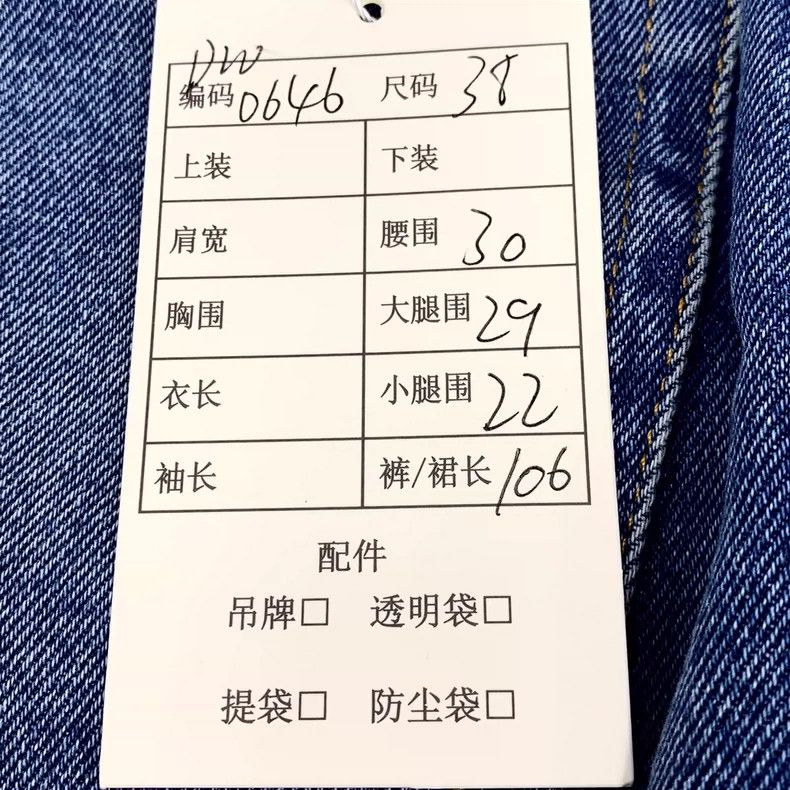 DW
编码 0646 尺码 38
上装 下装
肩宽 腰围 30
胸围 大腿围 29
衣长 小腿围 22
袖长 裤/裙长 106
配件
吊牌□ 透明袋□
提袋□ 防尘袋□